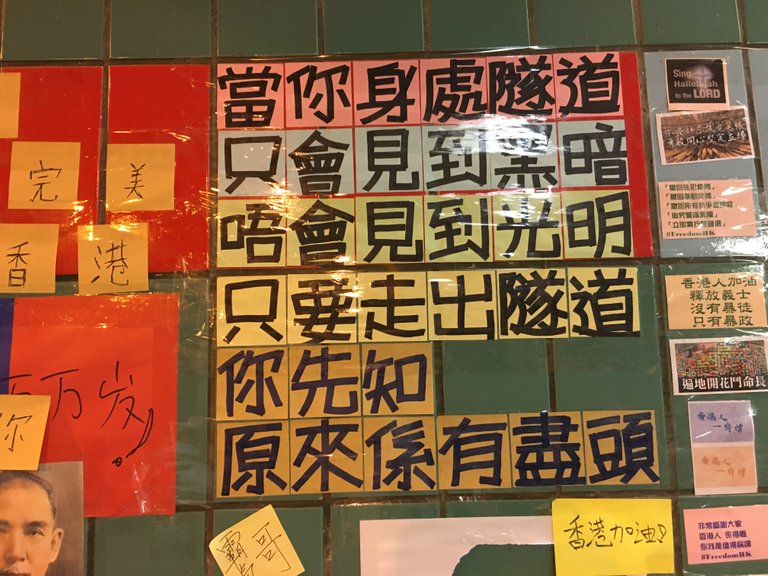 當你身處隧道
只會見到黑暗
唔會見到光明
只要走出隧道
你先知
原來係有盡頭
完
美
香
港
万岁
你
霸
哥
香港加油!
Sing
Hallelujah
to the LORD
#FreedomHK
香港人加油
釋放義士
沒有暴徒
只有暴政
遍地開花鬥命長
香港人
一齊撐
香港人
一齊撐
非常感謝大家
香港人 係得嘅
你我是值得稱讚
#FreedomHK